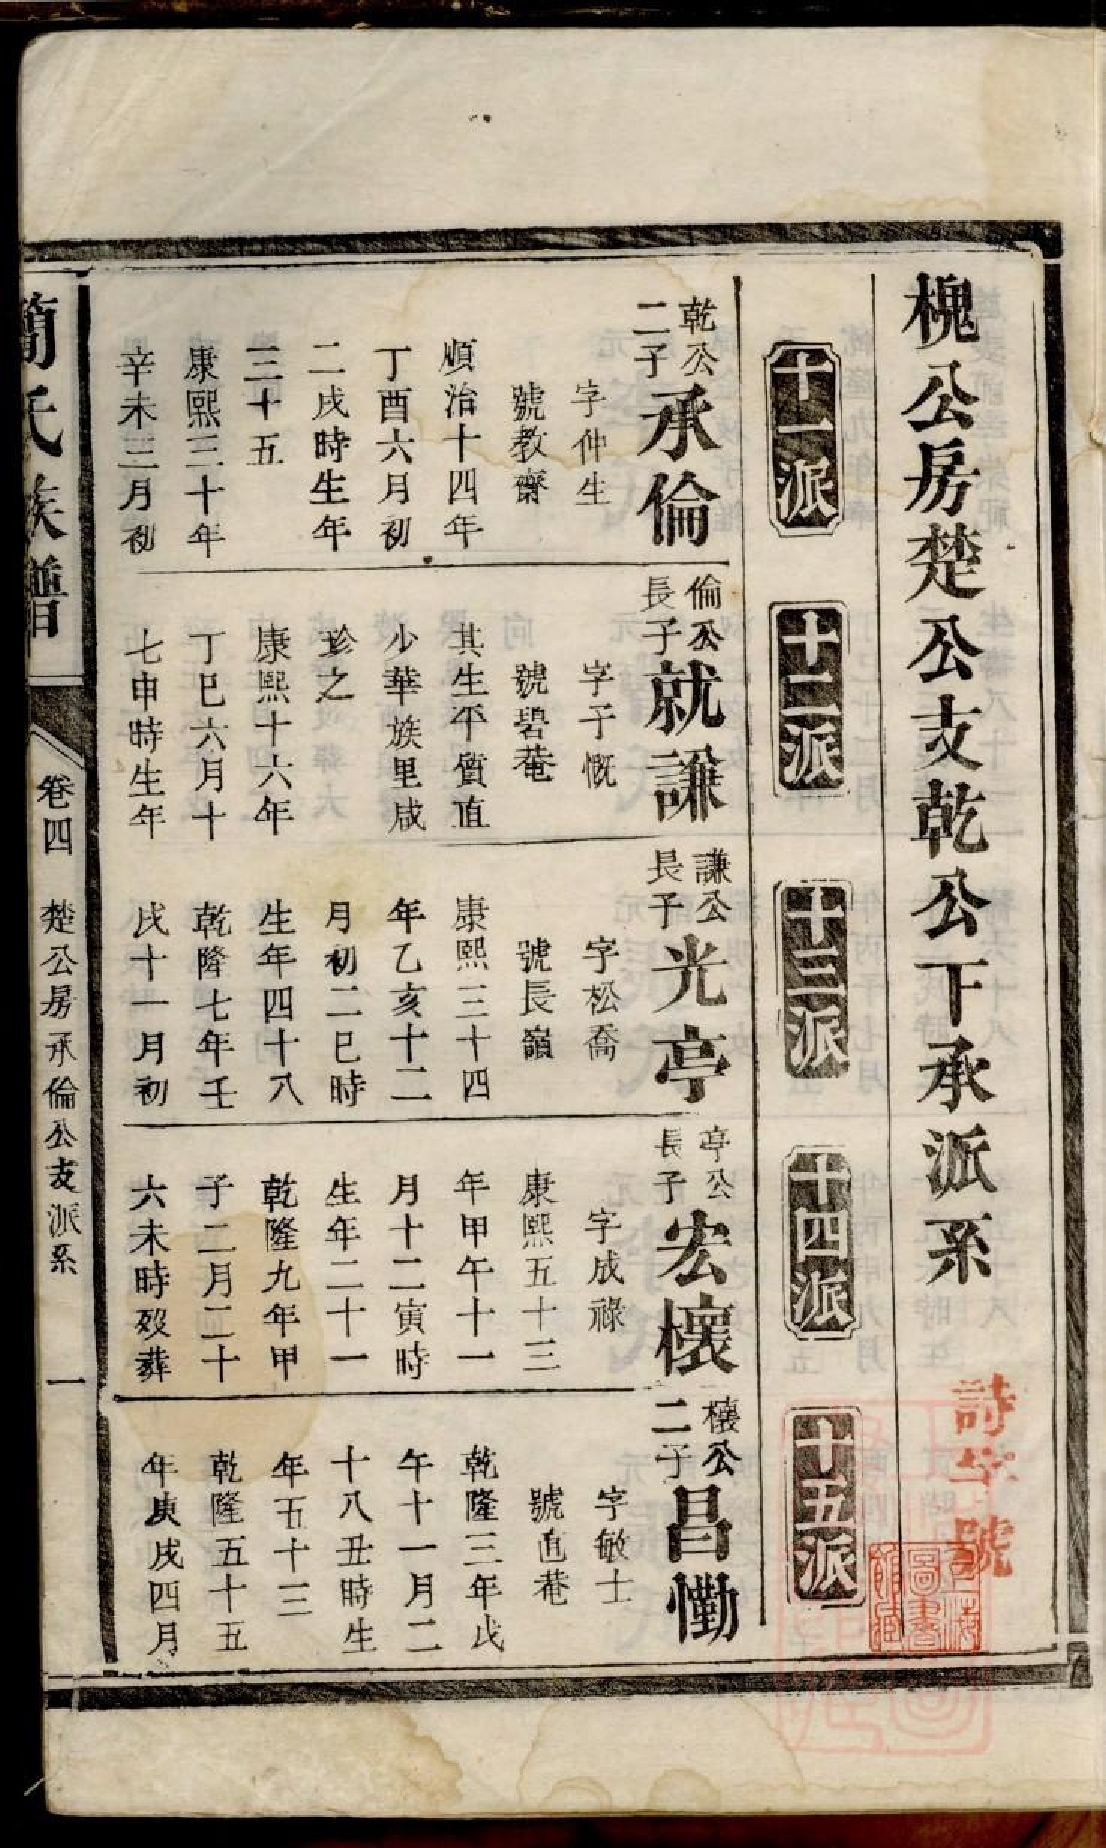 槐公房楚公支乾公下承派系
詩字號
上海
圖書
館藏
十一派
十二派
十三派
十四派
十五派
乾公
二子
承倫
字仲生
號教齋
順治十四年
丁酉六月初
二戌時生年
三十五
康熙三十年
辛未三月初
倫公
長子
就謙
字子慨
號碧菴
其生平質直
少華族里咸
珍之
康熙十六年
丁巳六月十
七申時生年
謙公
長子
光亭
字松喬
號長嶺
康熙三十四
年乙亥十二
月初二巳時
生年四十八
乾隆七年壬
戌十一月初
亭公
長子
宏櫰
字成祿
康熙五十三
年甲午十一
月十二寅時
生年二十一
乾隆九年甲
子二月二十
六未時歿葬
櫰公
二子
昌懃
字敏士
號直菴
乾隆三年戊
午十一月二
十八丑時生
年五十三
乾隆五十五
年庚戌四月
簡氏族譜
卷四 楚公房承倫公支派系 一